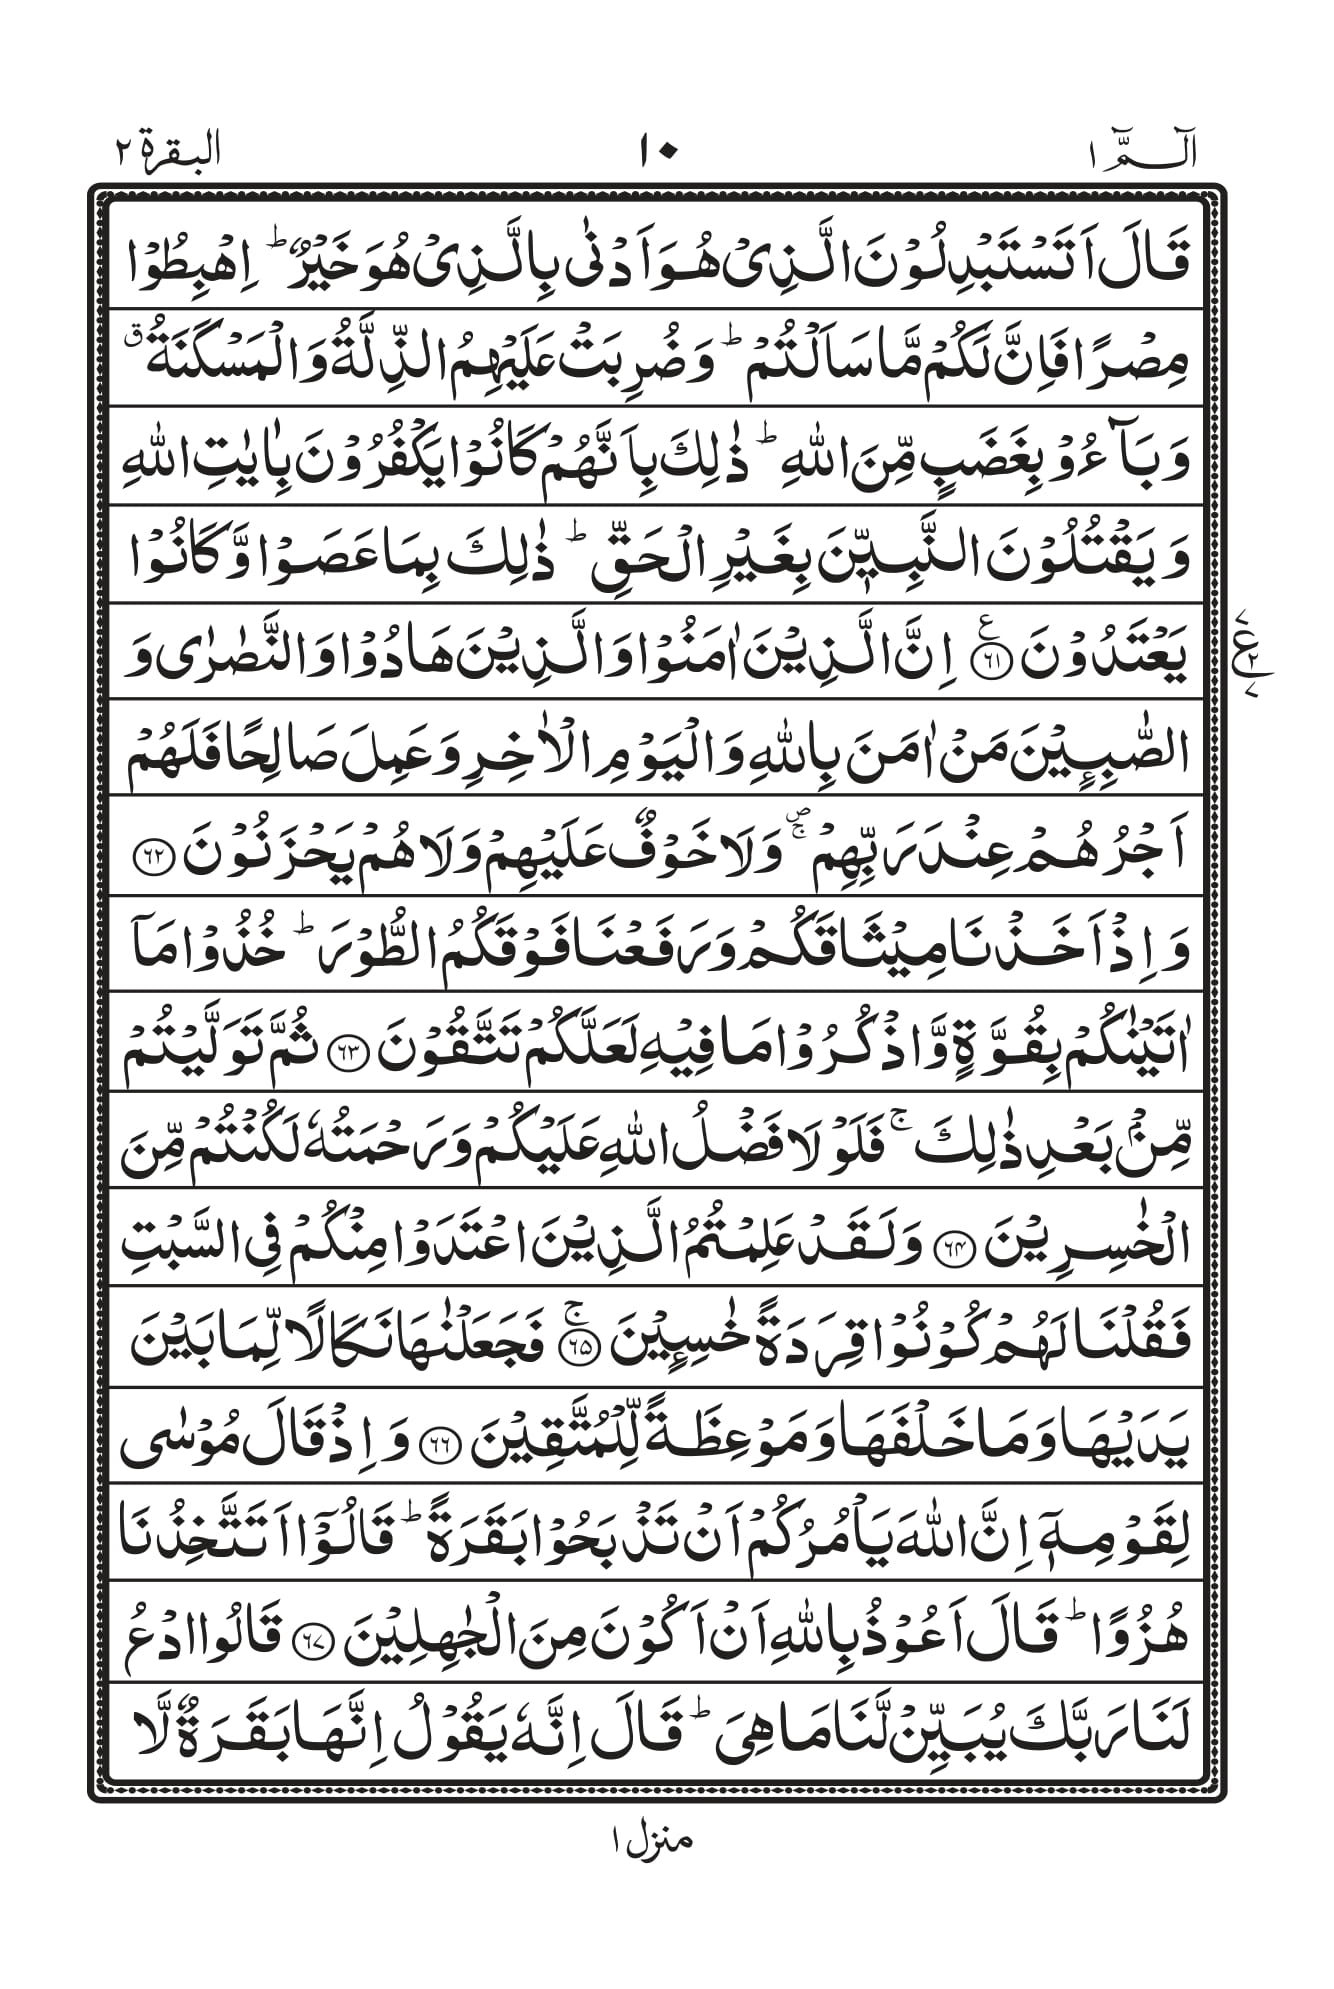 الٓمّٓ ١ ١٠ البقرة ٢
قَالَ اَتَسْتَبْدِلُوْنَ الَّذِىْ هُوَ اَدْنٰى بِالَّذِىْ هُوَ خَيْرٌ ؕ اِهْبِطُوْا
مِصْرًا فَاِنَّ لَكُمْ مَّا سَاَلْتُمْ ؕ وَضُرِبَتْ عَلَيْهِمُ الذِّلَّةُ وَالْمَسْكَنَةُ ۗ
وَبَآءُوْ بِغَضَبٍ مِّنَ اللّٰهِ ؕ ذٰلِكَ بِاَنَّهُمْ كَانُوْا يَكْفُرُوْنَ بِاٰيٰتِ اللّٰهِ
وَيَقْتُلُوْنَ النَّبِيّٖنَ بِغَيْرِ الْحَقِّ ؕ ذٰلِكَ بِمَا عَصَوْا وَّكَانُوْا
يَعْتَدُوْنَ ﴿۶۱﴾ ع اِنَّ الَّذِيْنَ اٰمَنُوْا وَالَّذِيْنَ هَادُوْا وَالنَّصٰرٰى وَ
ع ٧ ٢ ٧
الصّٰبِـِٕيْنَ مَنْ اٰمَنَ بِاللّٰهِ وَالْيَوْمِ الْاٰخِرِ وَعَمِلَ صَالِحًا فَلَهُمْ
اَجْرُهُمْ عِنْدَ رَبِّهِمْ ۖۚ وَلَا خَوْفٌ عَلَيْهِمْ وَلَا هُمْ يَحْزَنُوْنَ ﴿۶۲﴾
وَاِذْ اَخَذْنَا مِيْثَاقَكُمْ وَرَفَعْنَا فَوْقَكُمُ الطُّوْرَ ؕ خُذُوْا مَآ
اٰتَيْنٰكُمْ بِقُوَّةٍ وَّاذْكُرُوْا مَا فِيْهِ لَعَلَّكُمْ تَتَّقُوْنَ ﴿۶۳﴾ ثُمَّ تَوَلَّيْتُمْ
مِّنْۢ بَعْدِ ذٰلِكَ ۚ فَلَوْلَا فَضْلُ اللّٰهِ عَلَيْكُمْ وَرَحْمَتُهٗ لَكُنْتُمْ مِّنَ
الْخٰسِرِيْنَ ﴿۶۴﴾ وَلَقَدْ عَلِمْتُمُ الَّذِيْنَ اعْتَدَوْا مِنْكُمْ فِى السَّبْتِ
فَقُلْنَا لَهُمْ كُوْنُوْا قِرَدَةً خٰسِـِٕيْنَ ﴿۶۵﴾ ۚ فَجَعَلْنٰهَا نَكَالًا لِّمَا بَيْنَ
يَدَيْهَا وَمَا خَلْفَهَا وَمَوْعِظَةً لِّلْمُتَّقِيْنَ ﴿۶۶﴾ وَاِذْ قَالَ مُوْسٰى
لِقَوْمِهٖٓ اِنَّ اللّٰهَ يَاْمُرُكُمْ اَنْ تَذْبَحُوْا بَقَرَةً ؕ قَالُوْٓا اَتَتَّخِذُنَا
هُزُوًا ؕ قَالَ اَعُوْذُ بِاللّٰهِ اَنْ اَكُوْنَ مِنَ الْجٰهِلِيْنَ ﴿۶۷﴾ قَالُوا ادْعُ
لَنَا رَبَّكَ يُبَيِّنْ لَّنَا مَا هِىَ ؕ قَالَ اِنَّهٗ يَقُوْلُ اِنَّهَا بَقَرَةٌ لَّا
منزل ١